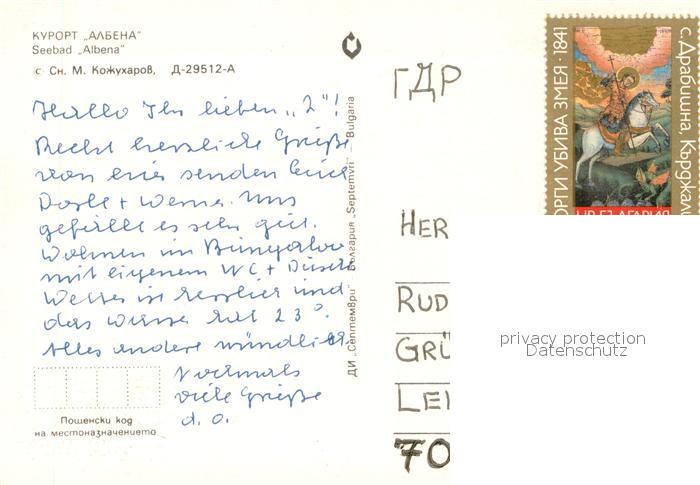 КУРОРТ „АЛБЕНА"
Seebad „Albena"
© Сн. М. Кожухаров, Д-29512-А
Hallo Ihr lieben „2"!
Recht herzliche Grüße
von hier senden Euch
+ Werner. Uns
gefällt es sehr gut.
Wohnen im Bungalow
mit eigenem WC + Dusche
Wetter ist herrlich und
das Wasser hat 23°.
Alles andere mündlich.
Nochmals
viele Grüße
d. O.
Пощенски код
на местоназначението
ДИ „Септември" България „Septemvri" Bulgaria
ГДР
HER
RUD
GRÜ
LEI
70
ОРГИ УБИВА ЗМЕЯ · 1841
с. Драбишна, Кърджал
НР БЪЛГАРИЯ
privacy protection
Datenschutz